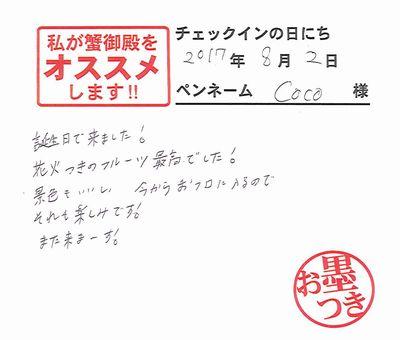 私が蟹御殿を
オススメ
します!!
チェックインの日にち
2017年 8月 2日
ペンネーム Coco 様
誕生日で来ました!
花火つきのフルーツ最高でした!
景色もいいし 今からおフロに入るので
それも楽しみです!
また来まーす!
お墨つき